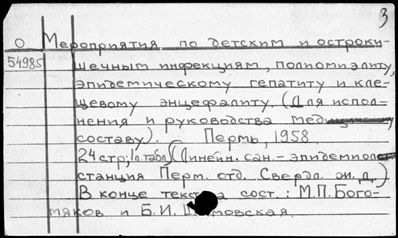 3
О Мероприятия по детским и остроки-
54985 шечным инфекциям, полиомиэлиту,
эпидемическому гепатиту и кле-
щевому энцефалиту. (Для испол-
нения и руководства
составу). Пермь, 1958
24 стр; 1 л. табл. (Линейн. сан.-эпидемиол.
станция Перм. отд. Свердл. ж.д.)
В конце текста сост.: М.П. Бого-
мяков и Б.И.